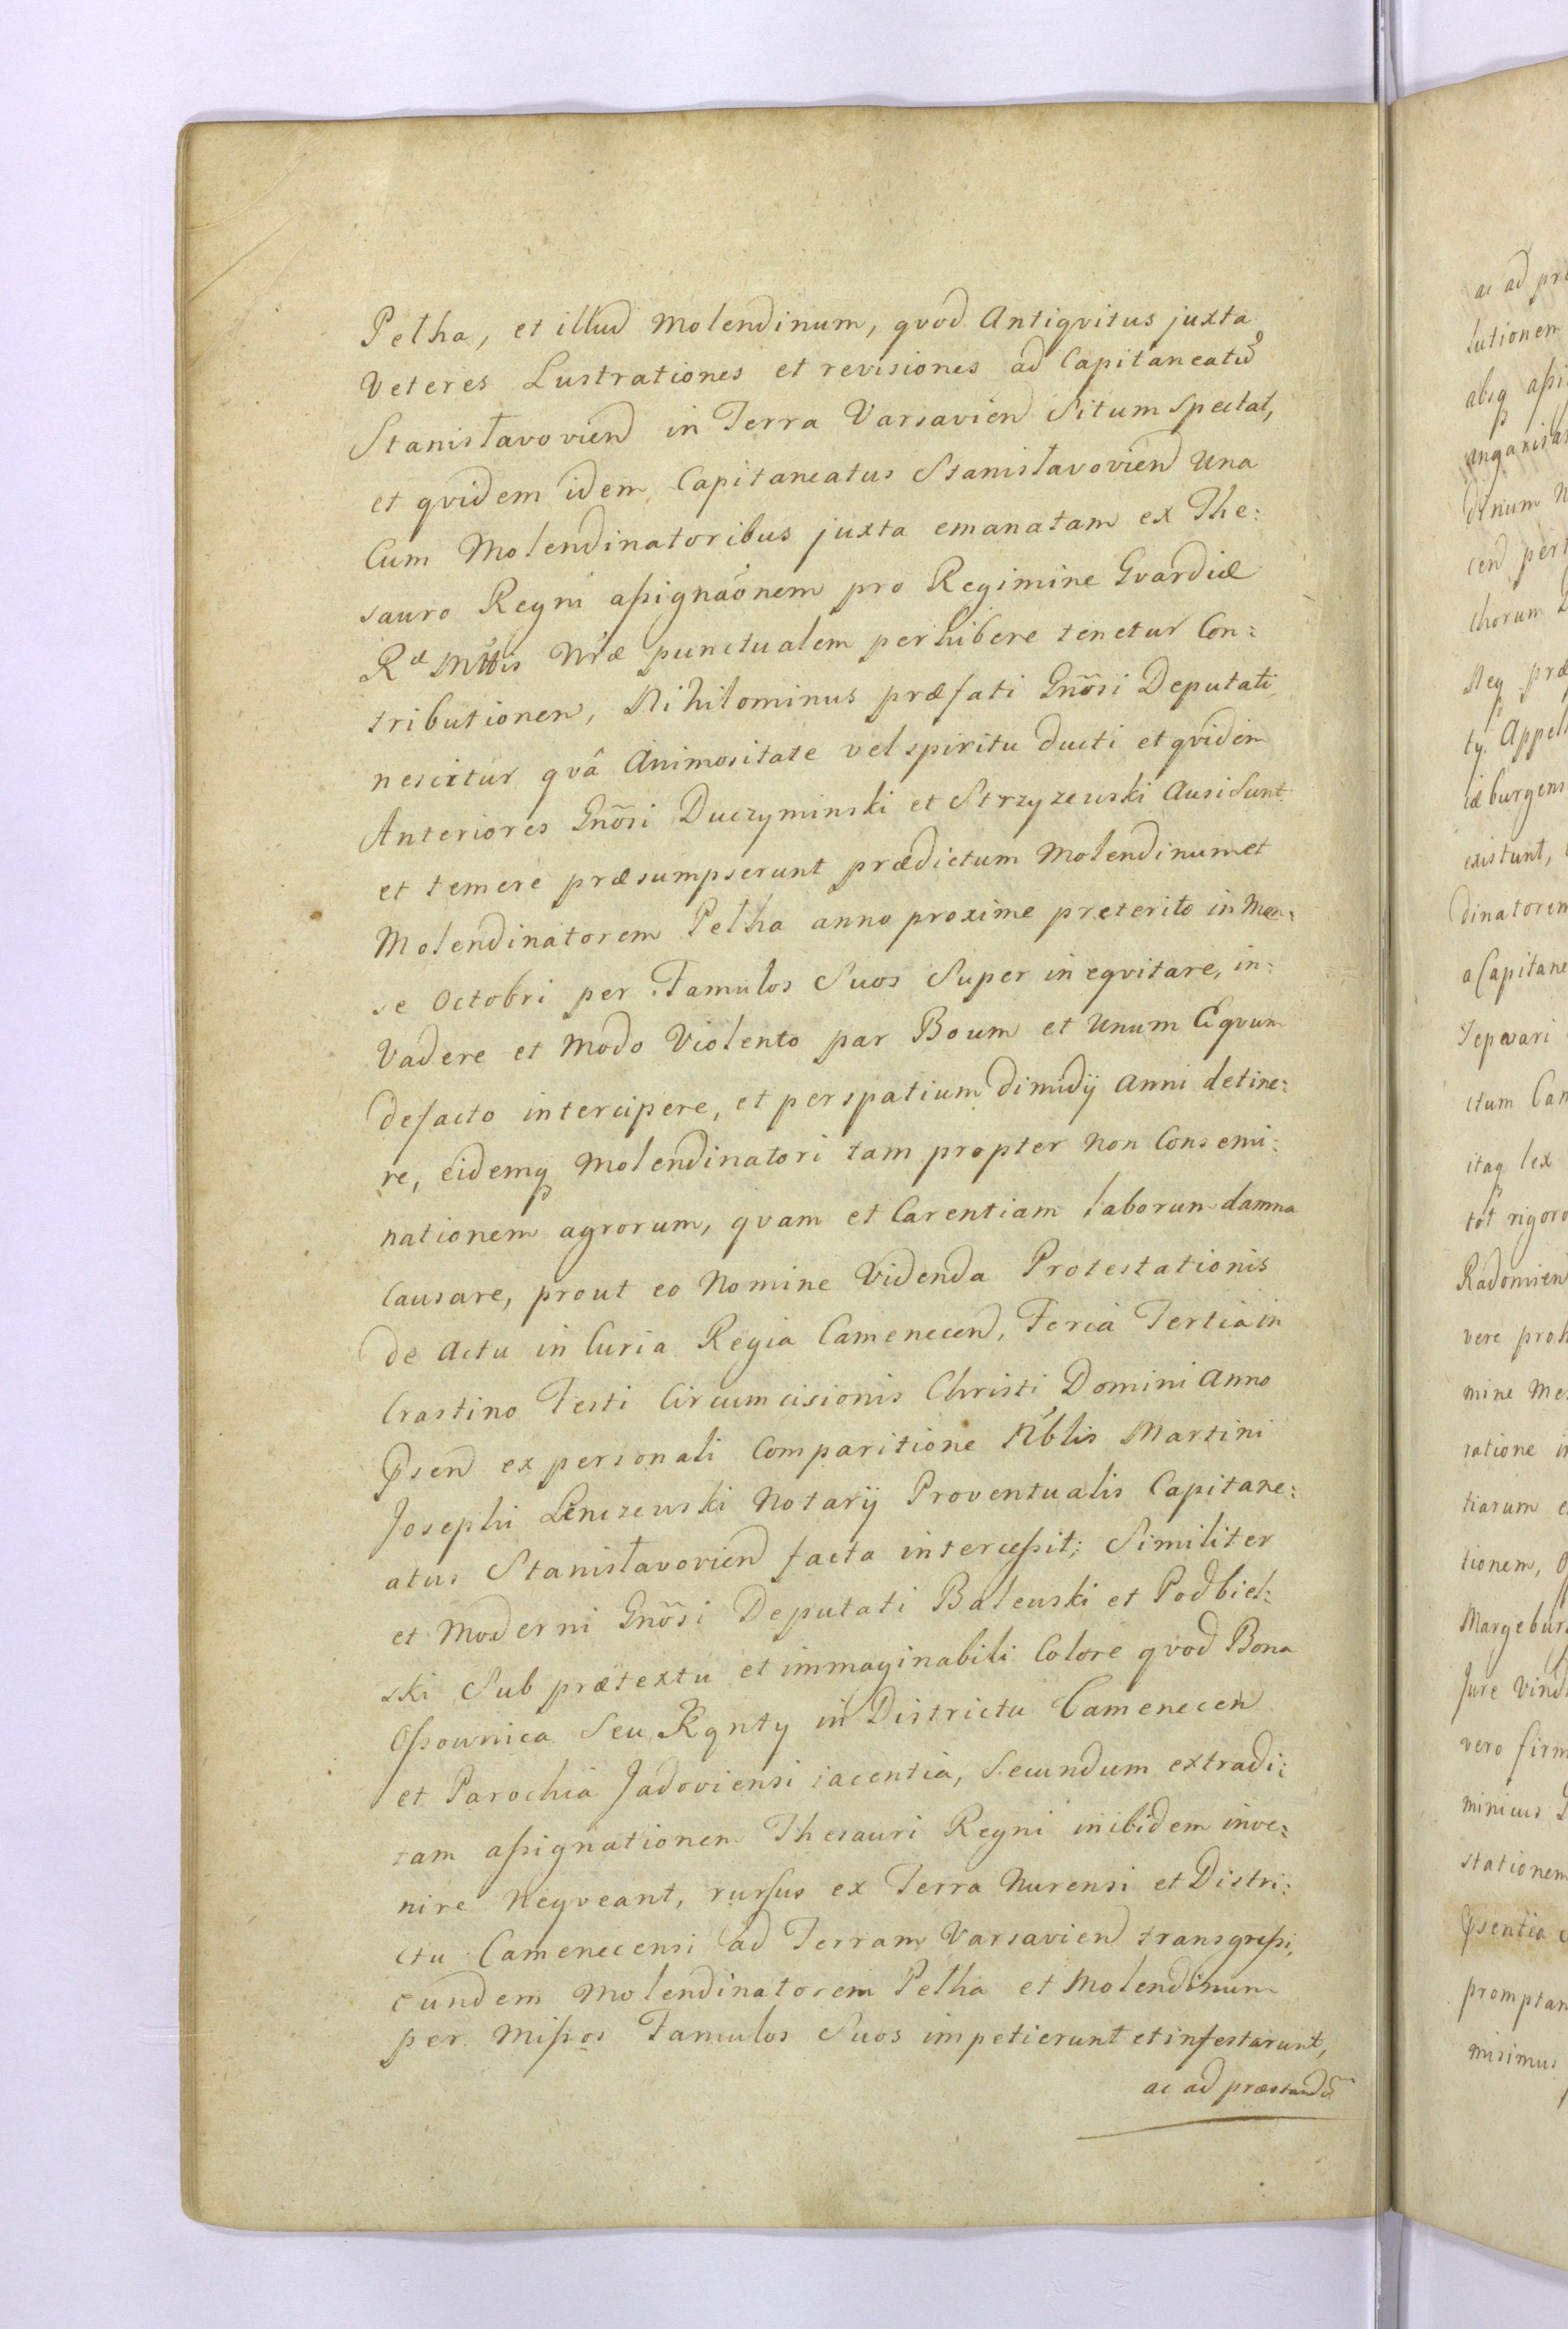 Petha, et illud Molendinum, qvod Antiqvitus juxta
Veteres Lustrationes et revisiones ad Capitaneatũ
Stanisławoviend in Terra Varsaviend Situm Spectat,
et qvidem idem Capitaneatus Stanisławoviend Una
Cum Molendinatoribus juxta emanatam ex The:
sauro Regni aßignãonem pro Regimine Gvardiæ
Ræ Mttis Nræ punctualem perhibere tenetur Con:
tributionem, Nihilominus præfati Gnõsi Deputati
nescitur qvâ Animositate vel spiritu ducti et qvidem
Anteriores Gnõsi Duczyminski et Strzyzewski Ausi Sunt
et temere præsumpserunt prædictum Molendinum et
Molendinatorem Petha anno proxime preterito in Men:
se Octobri per Famulos Suos Super in eqvitare, in:
Vadere et Modo Violento par Boum et Unum Eqvum
defacto intercipere, et per spatium dimidÿ Anni detine:
re, eidemq Molendinatori tam propter Non Consemi:
nationem agrorum, qvam et Carentiam laborum damna
Causare, prout eo Nomine Videnda Protestationis
de Actu in Curia Regia Camenecend, Feria Tertia in
Crastino Festi Circumcisionis Christi Domini Anno
Psend ex personali Comparitione Nblis Martini
Josephi Lenczewski Notarÿ Proventualis Capitane:
atus Stanisławoviend facta interceßit; Similiter
et Moderni Gnõsi Deputati Balewski et Podbiel:
ski Sub prætextu et immaginabili Colore qvod Bona
Oßownica Seu Kqnty in Districtu Camenecen
et Parochia Jadoviensi iacentia, Secundum extradi:
tam aßignationem Thesauri Regni inibidem inve:
nire Neqveant, rursus ex Terra Nurensi et Distri:
ctu Camenecensi ad Terram Varsaviend transgreßi,
eundem Molendinatorem Petha et Molendinum
per Mißos Famulos Suos impetierunt et infestarunt,
ac ad præstandã